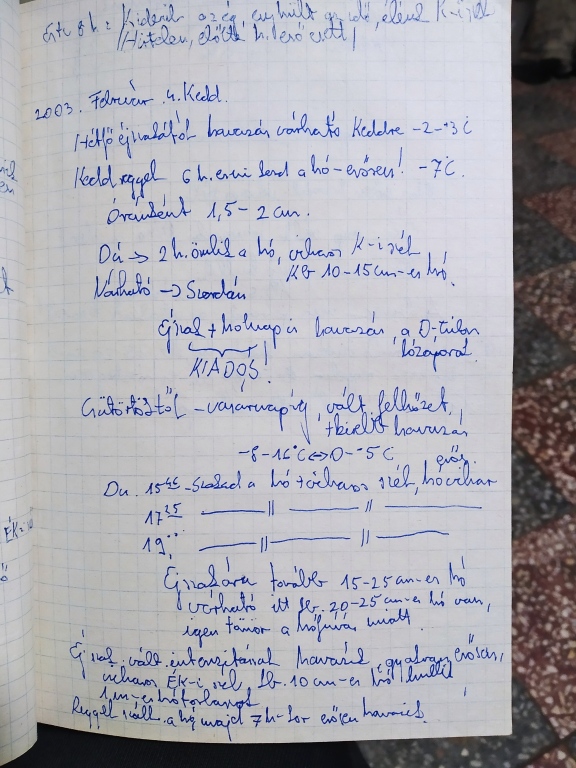 Este 8 h: Kiderül az ég, enyhült az idő, élénk K-i szél
/Hirtelen, előtte h. erő vett/
2003. Február. 4. Kedd.
Hétfő éjszakától havazás várható Keddre -2-+3°C
Kedd reggel 6 h. esni kezd a hó-erősen! -7°C.
Óránként 1,5-2 cm.
Du → 2 h. ömlik a hó, viharos K-i szél
Kb 10-15 cm-es hó.
Várható → Szerdán
éjszaka + holnap is havazás, a D-túlon
hózáporok
KIADÓS!
Csütörtöktől - vasárnapig, vált. felhőzet,
+kisebb havazás
-8-16°C ↔ 0--5°C
erős
Du. 15 45 -Szakad a hó + viharos szél, hóvihar
17 25 — 〃 — 〃 —
19. — 〃 — 〃 —
Éjszakára további 15-25 cm-es hó
várható itt kb. 20-25 cm-es hó van,
igen tömör a hófúvás miatt.
Éjszaka vált. intenzitásnak havazás, gyakran erősen,
viharos ÉK-i szél, kb. 10 cm-es hó hullott
1 m-es hótorlaszok
Reggel száll. a hó majd 7 h-kor erősen havazik.
ÉK-i